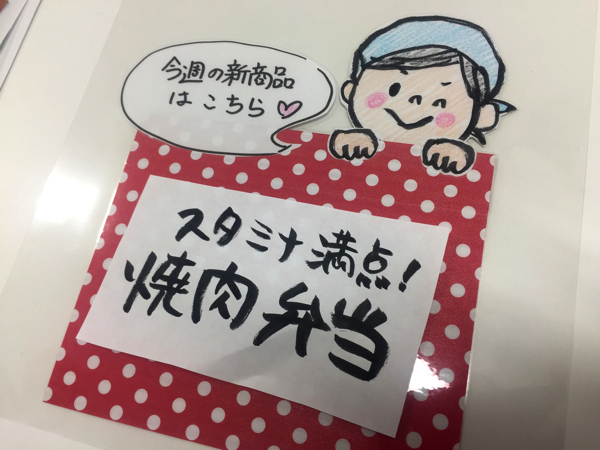 今週の新商品
はこちら♡
スタミナ満点!
焼肉弁当